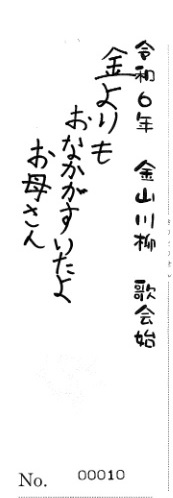 令和6年　金山川柳　歌会始
金よりも
おなかがすいたよ
お母さん
No. 00010